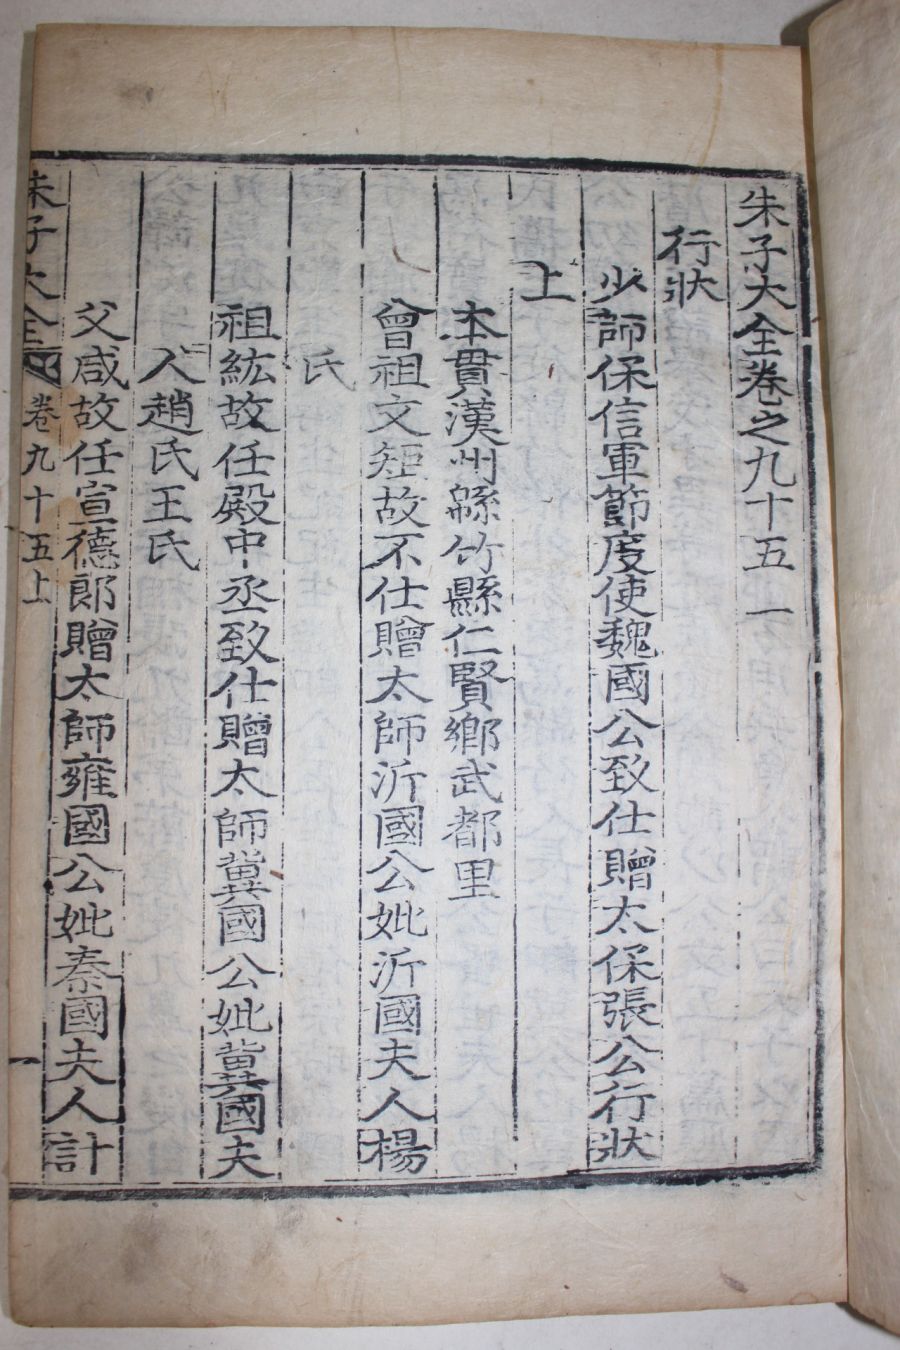 朱子大全卷之九十五 一
行狀
少師保信軍節度使魏國公致仕贈太保張公行狀
上
本貫漢州緜竹縣仁賢鄉武都里
曾祖文矩故不仕贈太師沂國公妣沂國夫人楊
氏
祖紘故任殿中丞致仕贈太師冀國公妣冀國夫
人趙氏王氏
父咸故任宣德郎贈太師雍國公妣秦國夫人計
朱子大全 卷九十五上 一